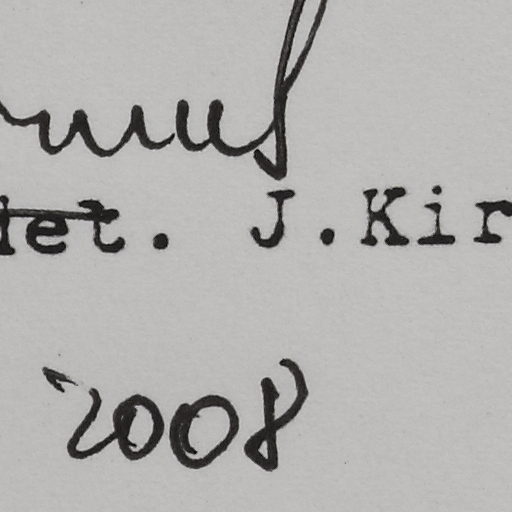 det. J.Kir
2008